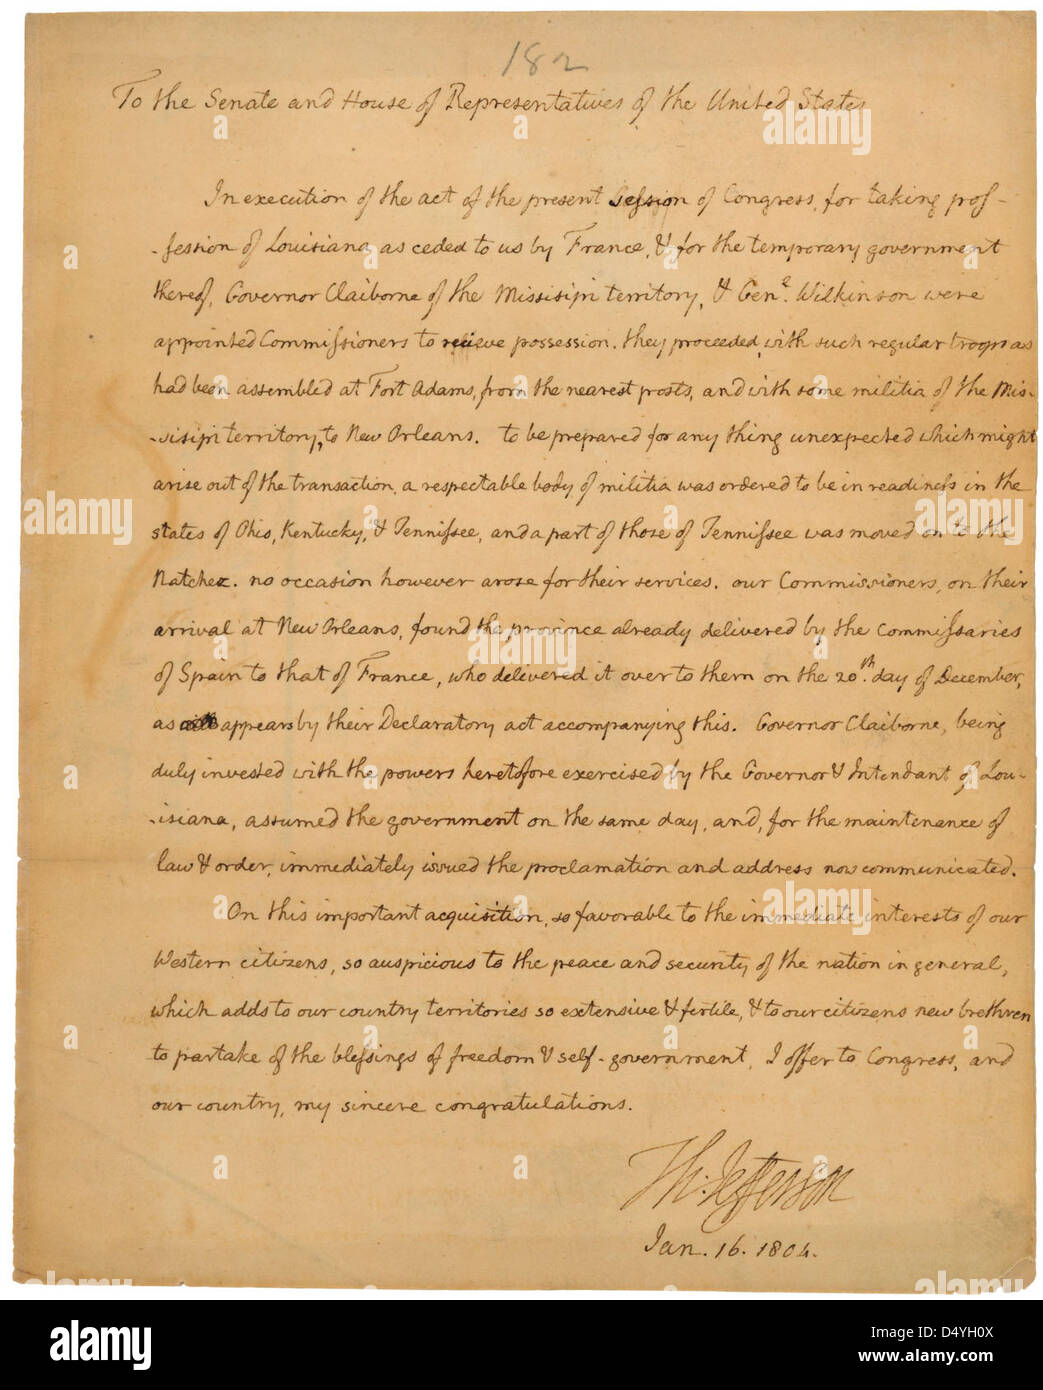 182
To the Senate and House of Representatives of the United States
In execution of the act of the present Session of Congress, for taking pos-
-session of Louisiana as ceded to us by France, & for the temporary government
thereof, Governor Claiborne of the Missisipi territory, & Genl. Wilkinson were
appointed Commissioners to recieve possession. they proceeded, with such regular troops as
had been assembled at Fort Adams, from the nearest posts, and with some militia of the Mis-
-sisipi territory, to New Orleans. to be prepared for any thing unexpected which might
arise out of the transaction, a respectable body of militia was ordered to be in readiness in the
states of Ohio, Kentucky, & Tennissee, and a part of those of Tennissee was moved on to the
Natchez. no occasion however arose for their services. our Commissioners, on their
arrival at New Orleans, found the province already delivered by the Commissaries
of Spain to that of France, who delivered it over to them on the 20th. day of December,
as appears by their Declaratory act accompanying this. Governor Claiborne, being
duly invested with the powers heretofore exercised by the Governor & Intendant of Lou-
-isiana, assumed the government on the same day, and, for the maintenance of
law & order, immediately issued the proclamation and address now communicated.
On this important acquisition, so favorable to the immediate interests of our
Western citizens, so auspicious to the peace and security of the nation in general,
which adds to our country territories so extensive & fertile, & to our citizens new brethren
to partake of the blessings of freedom & self-government, I offer to Congress, and
our country, my sincere congratulations.
Th: Jefferson
Jan. 16. 1804.
alamy
Image ID: D4YH0X
www.alamy.com